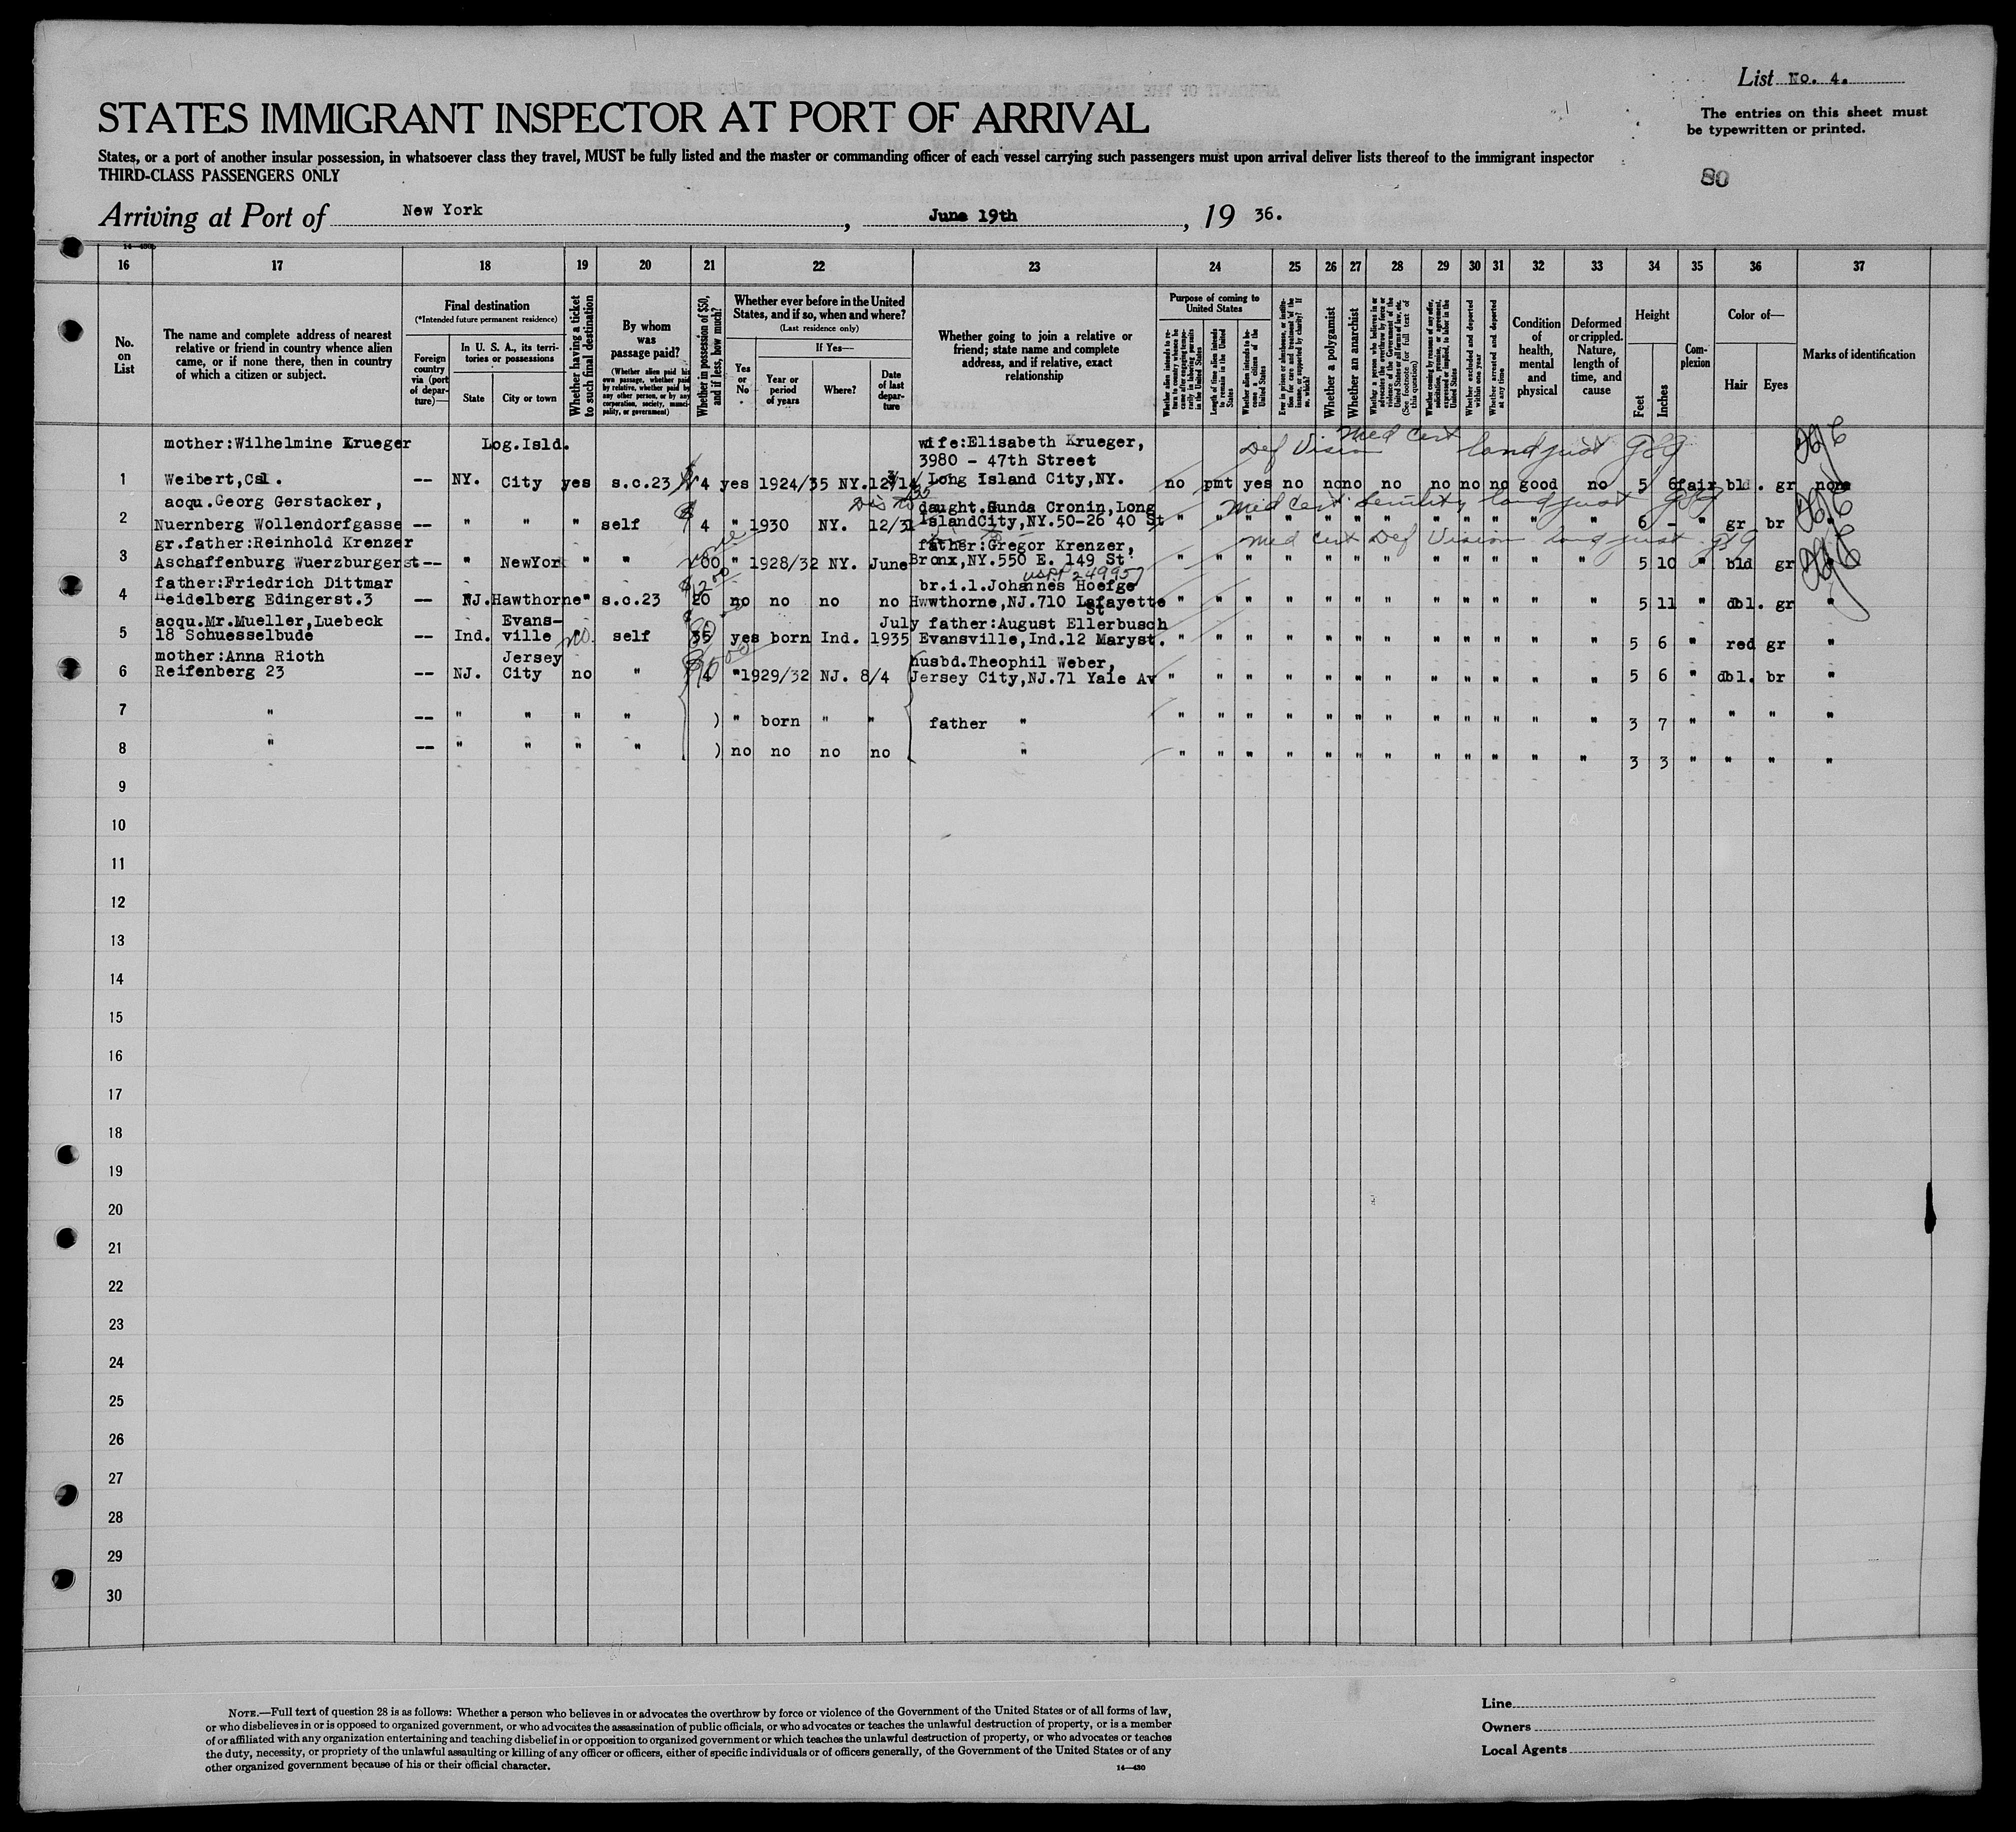 List No. 4.
STATES IMMIGRANT INSPECTOR AT PORT OF ARRIVAL
The entries on this sheet must
be typewritten or printed.
States, or a port of another insular possession, in whatsoever class they travel, MUST be fully listed and the master or commanding officer of each vessel carrying such passengers must upon arrival deliver lists thereof to the immigrant inspector
THIRD-CLASS PASSENGERS ONLY
80
Arriving at Port of New York, June 19th, 19 36.
16 17 18 19 20 21 22 23 24 25 26 27 28 29 30 31 32 33 34 35 36 37
No. on List
The name and complete address of nearest
relative or friend in country whence alien
came, or if none there, then in country
of which a citizen or subject.
Final destination
(*Intended future permanent residence)
Foreign country via (port of departure)—
In U. S. A., its territories or possessions
State
City or town
Whether having a ticket to such final destination
By whom was passage paid?
(Whether alien paid his own passage, whether paid by relative, whether paid by any other person, or by any corporation, society, municipality, or government)
Whether in possession of $50, and if less, how much?
Whether ever before in the United States, and if so, when and where?
(Last residence only)
Yes or No
If Yes—
Year or period of years
Where?
Date of last departure
Whether going to join a relative or
friend; state name and complete
address, and if relative, exact
relationship
Purpose of coming to United States
Length of time alien intends to remain in the United States
Whether alien intends to become a citizen of the United States
Whether a polygamist
Whether an anarchist
Whether excluded and deported within one year
Whether arrested and deported at any time
Condition of health, mental and physical
Deformed or crippled. Nature, length of time, and cause
Height
Feet
Inches
Complexion
Color of—
Hair
Eyes
Marks of identification
mother:Wilhelmine Krueger Log.Isld. wife:Elisabeth Krueger, Def Vision Med Cert land just
3980 - 47th Street
1 Weibert, -- NY. City yes s.c.23 4 yes 1924/35 NY. Long Island City,NY. no pmt yes no no no no no no no good no 5 6 fair bld. gr none
acqu.Georg Gerstacker, daught.Gunda Cronin,Long med cert senility land just
2 Nuernberg Wollendorfgasse -- " " " self 4 " 1930 NY. 12/31 IslandCity,NY.50-26 40 St " " " " " " " " " " " " 6 - " gr br "
gr.father:Reinhold Krenzer none father:Gregor Krenzer, med cert Def Vision land just
3 Aschaffenburg Wuerzburgerst -- " NewYork " " " 1928/32 NY. June Bronx,NY.550 E. 149 St " " " " " " " " " " " " 5 10 " bld gr "
father:Friedrich Dittmar br.i.l.Johannes Hoefge
4 Heidelberg Edingerst.3 -- NJ. Hawthorne " s.c.23 20 no no no no Hwwthorne,NJ.710 Lafayette St " " " " " " " " " " " " 5 11 " dbl. gr "
acqu.Mr.Mueller,Luebeck Evans- July father:August Ellerbusch
5 18 Schuesselbude -- Ind. ville no. self 35 yes born Ind. 1935 Evansville,Ind.12 Maryst. " " " " " " " " " " " " 5 6 " red gr "
mother:Anna Rioth Jersey husbd.Theophil Weber,
6 Reifenberg 23 -- NJ. City no " 4 " 1929/32 NJ. 8/4 Jersey City,NJ.71 Yale Av " " " " " " " " " " " " 5 6 " dbl. br "
7 " -- " " " " ) " born " " father " " " " " " " " " " " " " 3 7 " " " "
8 " -- " " " " ) no no no no " " " " " " " " " " " " " 3 3 " " " "
9
10
11
12
13
14
15
16
17
18
19
20
21
22
23
24
25
26
27
28
29
30
NOTE.—Full text of question 28 is as follows: Whether a person who believes in or advocates the overthrow by force or violence of the Government of the United States or of all forms of law,
or who disbelieves in or is opposed to organized government, or who advocates the assassination of public officials, or who advocates or teaches the unlawful destruction of property, or is a member
of or affiliated with any organization entertaining and teaching disbelief in or opposition to organized government or which teaches the unlawful destruction of property, or who advocates or teaches
the duty, necessity, or propriety of the unlawful assaulting or killing of any officer or officers, either of specific individuals or of officers generally, of the Government of the United States or of any
other organized government because of his or their official character.
14—430
Line
Owners
Local Agents